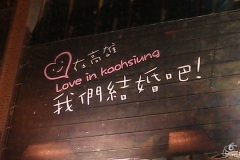 在高雄
Love in kaohsiung
我們結婚吧!